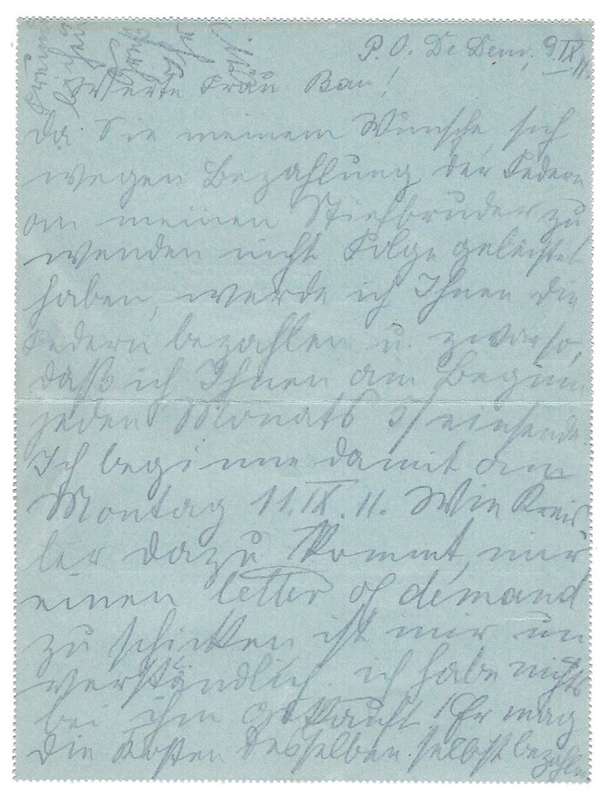 P. O. De Deur, 9. IX. 11.
Werte Frau Bau!
Da Sie meinem Wunsche, sich
wegen Bezahlung der Federn
an meinen Stiefbruder zu
wenden nicht Folge geleistet
haben, werde ich Ihnen die
Federn bezahlen u. zwar so,
daß ich Ihnen am Beginn
jeden Monats 5/ einsende.
Ich beginne damit am
Montag 11. IX. 11. Wie Kreis
ler dazu kommt, mir
einen letter of demand
zu schicken ist mir un
verständlich. ich habe nichts
bei ihm gekauft! Er mag
die Kosten desselben selbst bezahlen